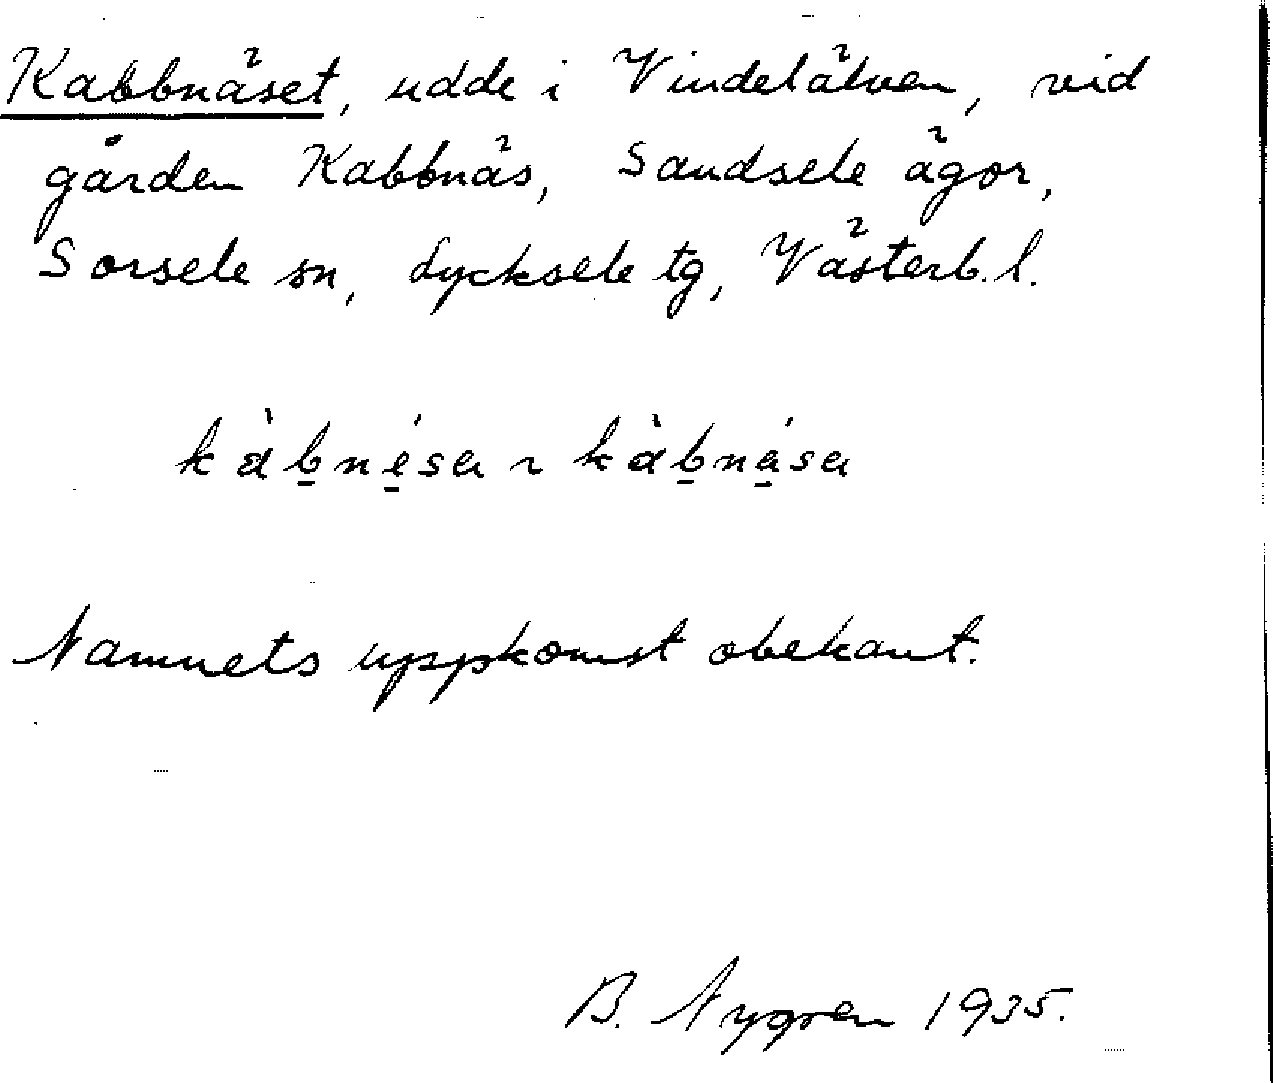 Kabbnäset, udde i Vindelälven, vid
gården Kabbnäs, Sandsele ägor,
Sorsele sn, Lycksele tg, Västerb. l.
kàb̠né̠sa ~ kàb̠ná̠sa
Namnets uppkomst obekant.
B. Nygren 1935.